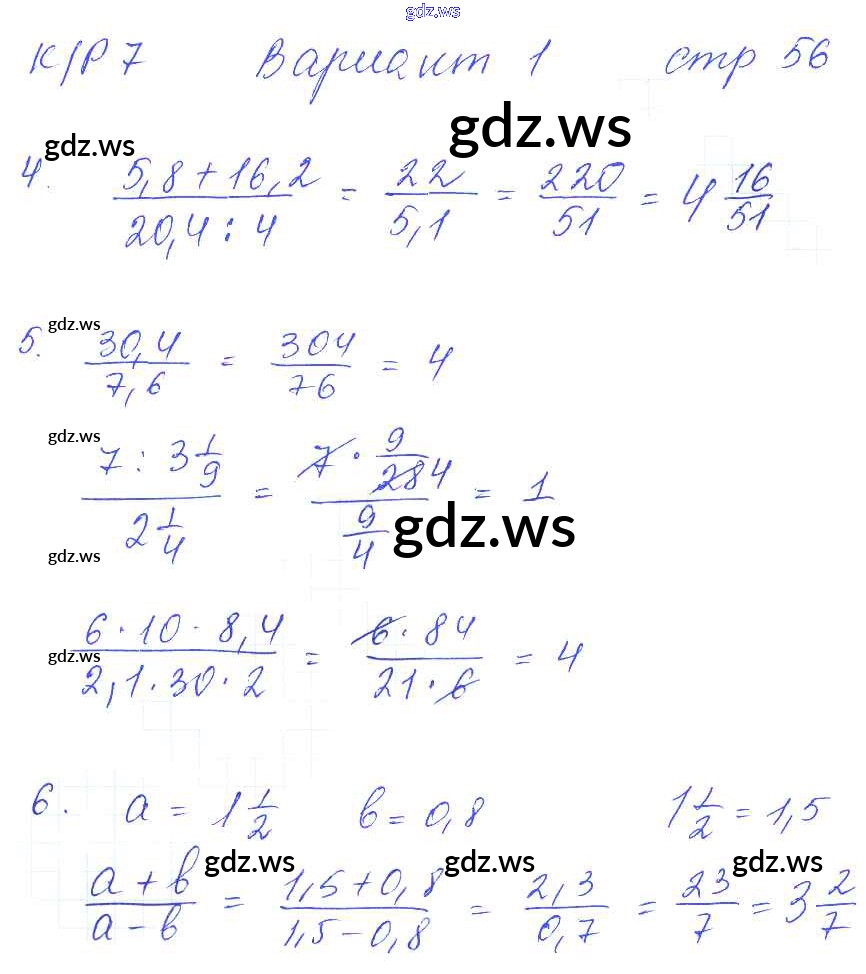 gdz.ws
К/Р 7 Вариант 1 стр 56
gdz.ws gdz.ws
4. (5,8 + 16,2)/(20,4 : 4) = 22/5,1 = 220/51 = 4 16/51
gdz.ws
5. 30,4/7,6 = 304/76 = 4
gdz.ws
(7 : 3 1/9)/(2 1/4) = (7 · 9/28 4)/(9/4) = 1
gdz.ws gdz.ws
(6 · 10 · 8,4)/(2,1 · 30 · 2) = (6 · 84)/(21 · 6) = 4
gdz.ws
6. a = 1 1/2 b = 0,8 1 1/2 = 1,5
gdz.ws gdz.ws gdz.ws
(a + b)/(a - b) = (1,5 + 0,8)/(1,5 - 0,8) = 2,3/0,7 = 23/7 = 3 2/7